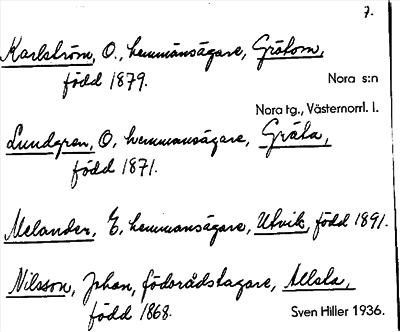 7.
Karlström, O., hemmansägare, Gråtom,
född 1879.
Nora s:n
Nora tg., Västernorrl. l.
Lundgren, O, hemmansägare, Gräta,
född 1871.
Melander, E, hemmansägare, Utvik, född 1891.
Nilsson, Johan, födorådstagare, Allsta,
född 1868.
Sven Hiller 1936.